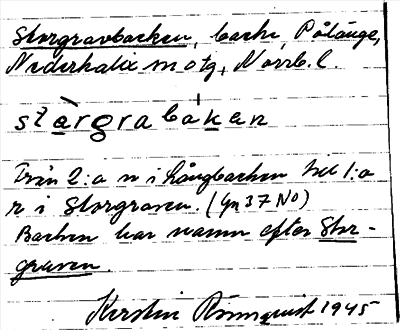 Storgravbacken, backe, Pålänge,
Nederkalix sn o tg, Norrb. l.
stàrgrabakan
Från 2:a n i Långbacken till 1:a
r i Storgraven. (Gn 37 NO)
Backen har namn efter Stor-
graven.
Kerstin Rönnquist 1945